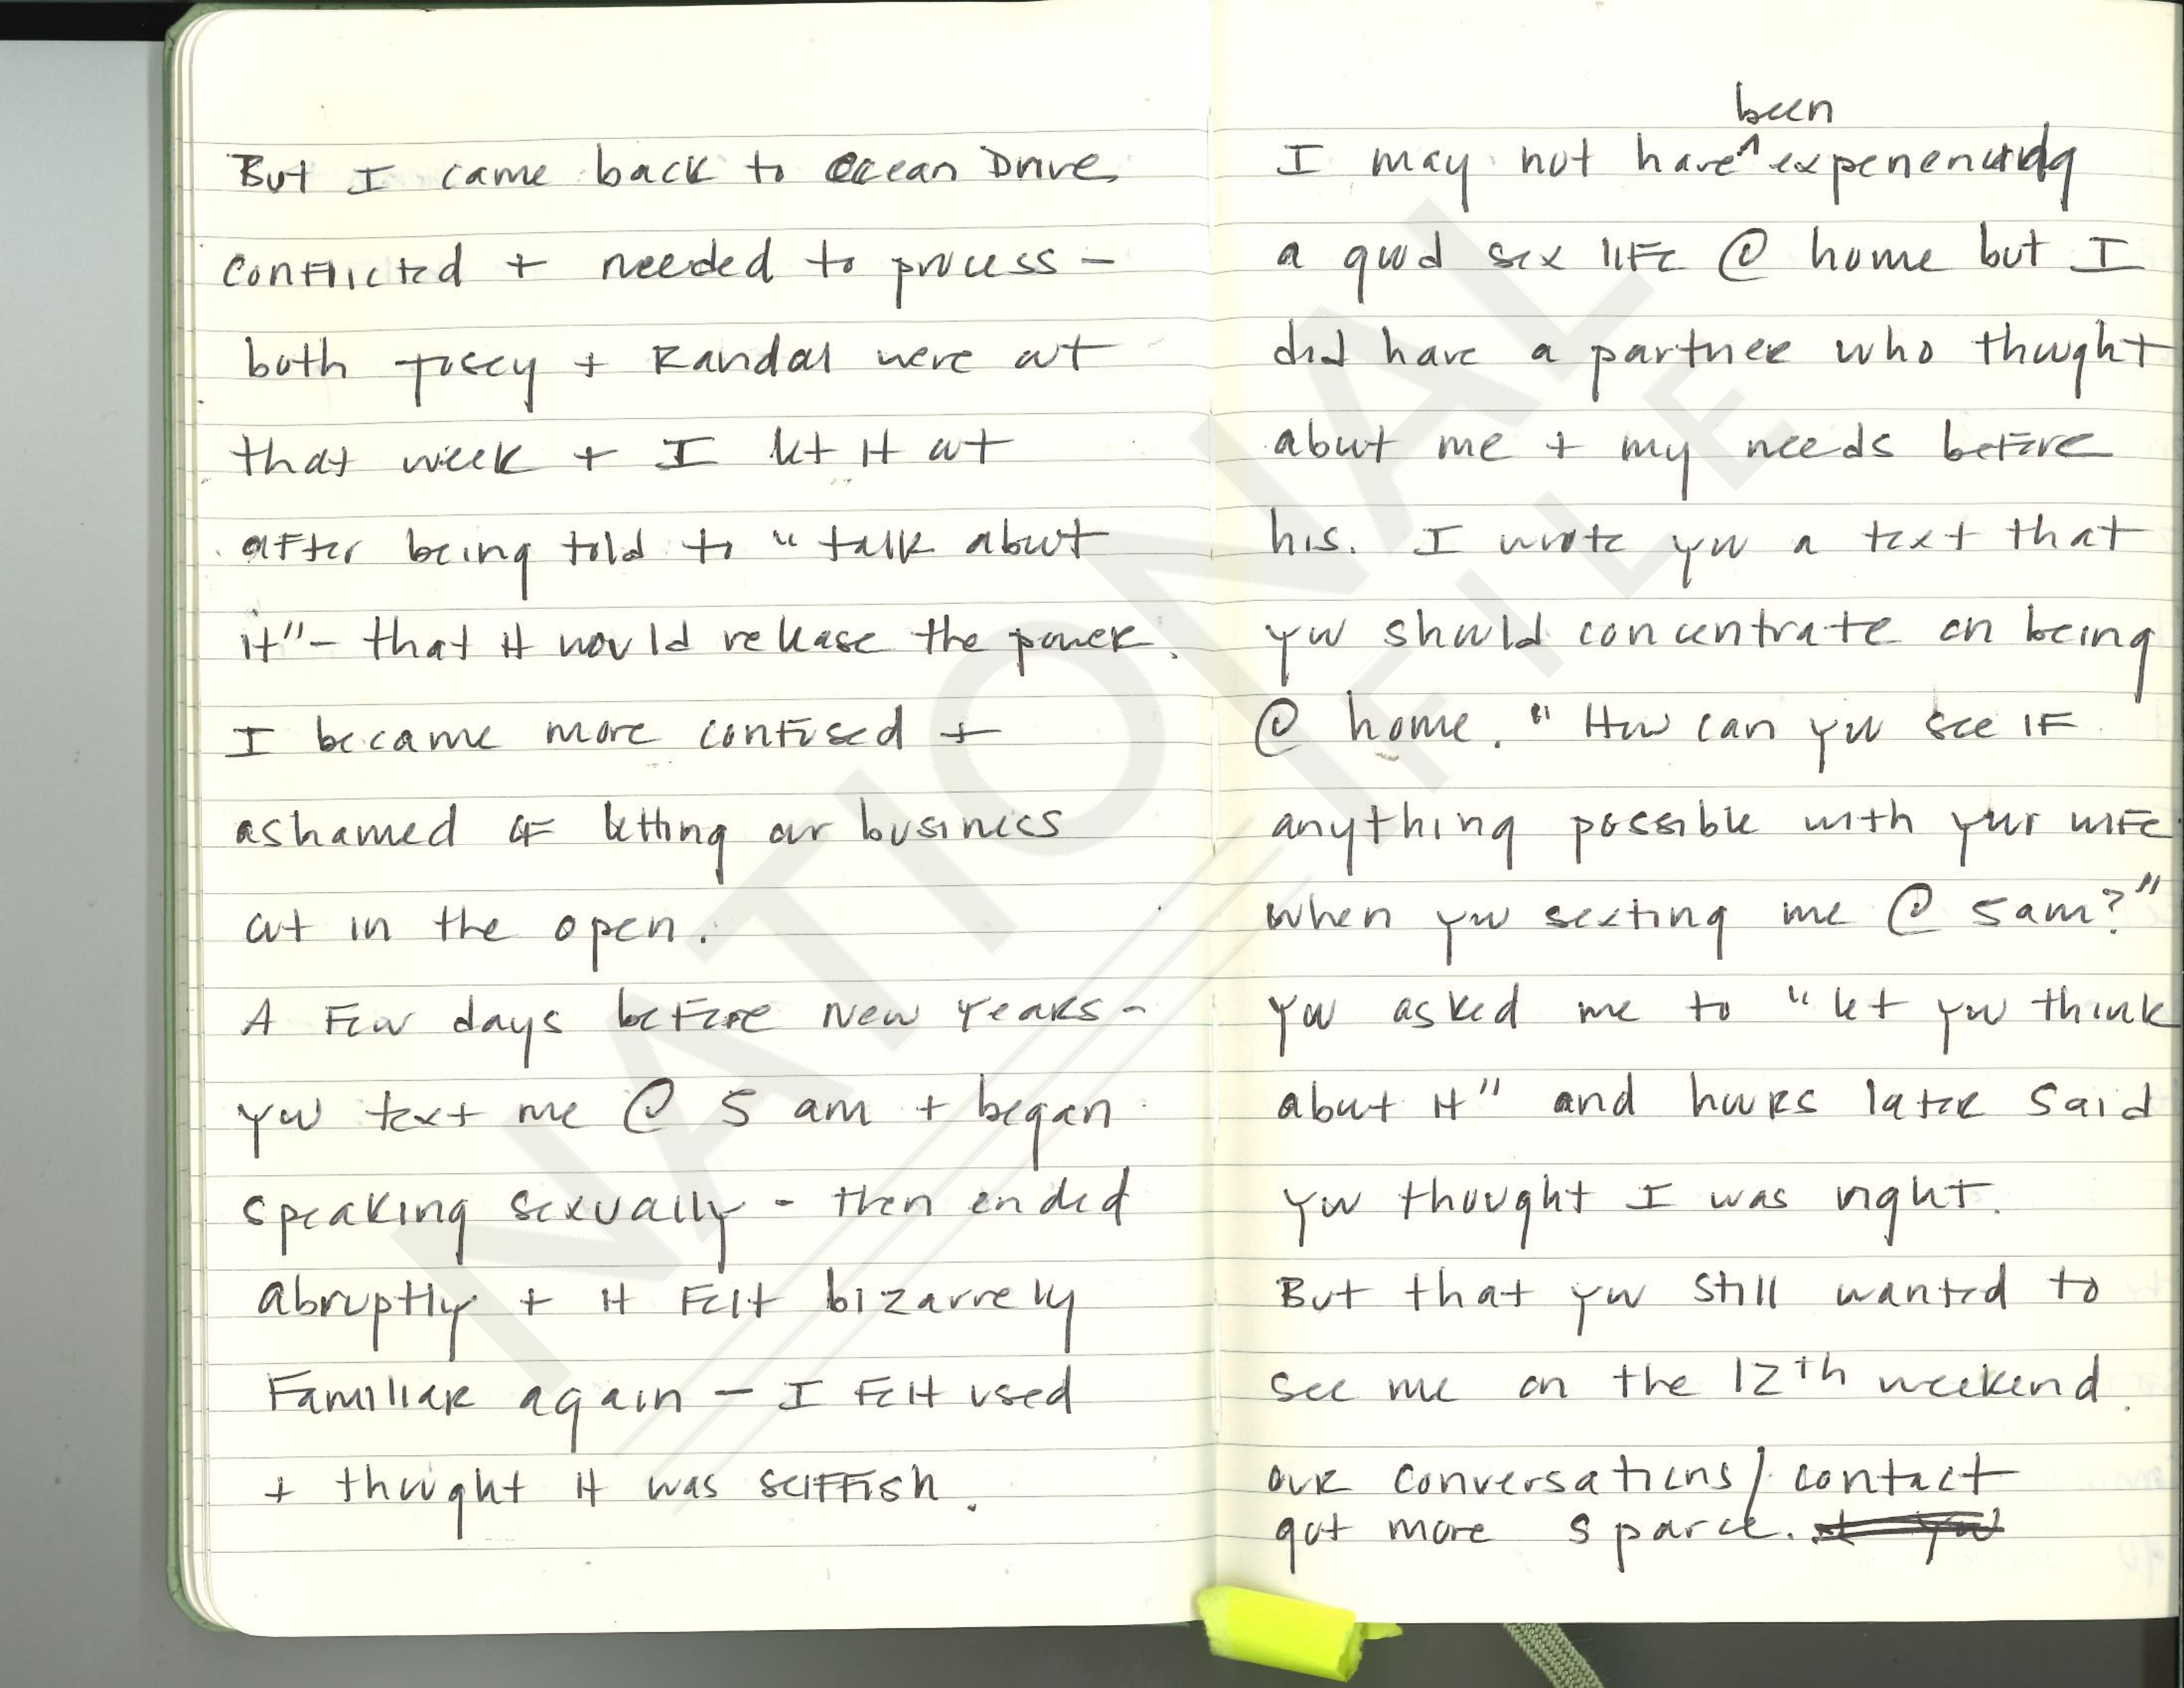 But I came back to Ocean Drive
conflicted + needed to process -
both + Randal were at
that week + I let it out
after being told to "talk about
it" - that it would release the power.
I became more confused +
ashamed of letting our business
out in the open.
A few days before New Years -
you text me @ 5 am + began
speaking sexually - then ended
abruptly + it felt bizarrely
familiar again - I felt used
+ thought it was selffish.
been
I may not have ^ experiencing
a good sex life @ home but I
did have a partner who thought
about me + my needs before
his. I wrote you a text that
you should concentrate on being
@ home. "How can you see if
anything possible with your wife
when you sexting me @ 5am?"
You asked me to "let you think
about it" and hours later said
you thought I was right.
But that you still wanted to
see me on the 12th weekend.
our conversations/contact
got more sparce.
NATIONAL
FILE